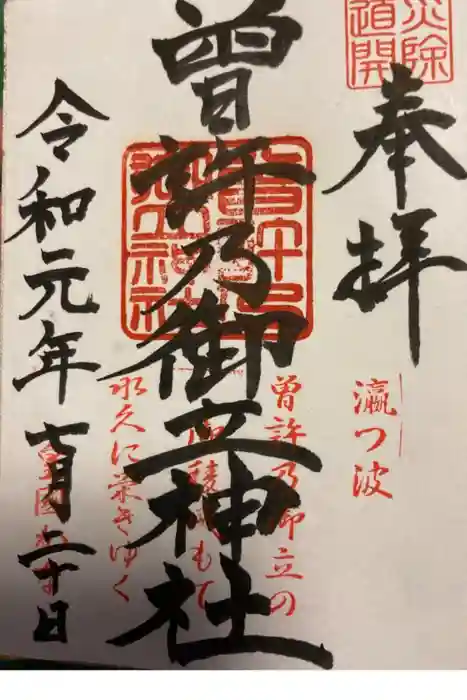 災除
道開
奉拝
瀛つ波
曾許乃御立の
もて
永久に栄きゆく
曾許乃御立神社
令和元年七月二十日